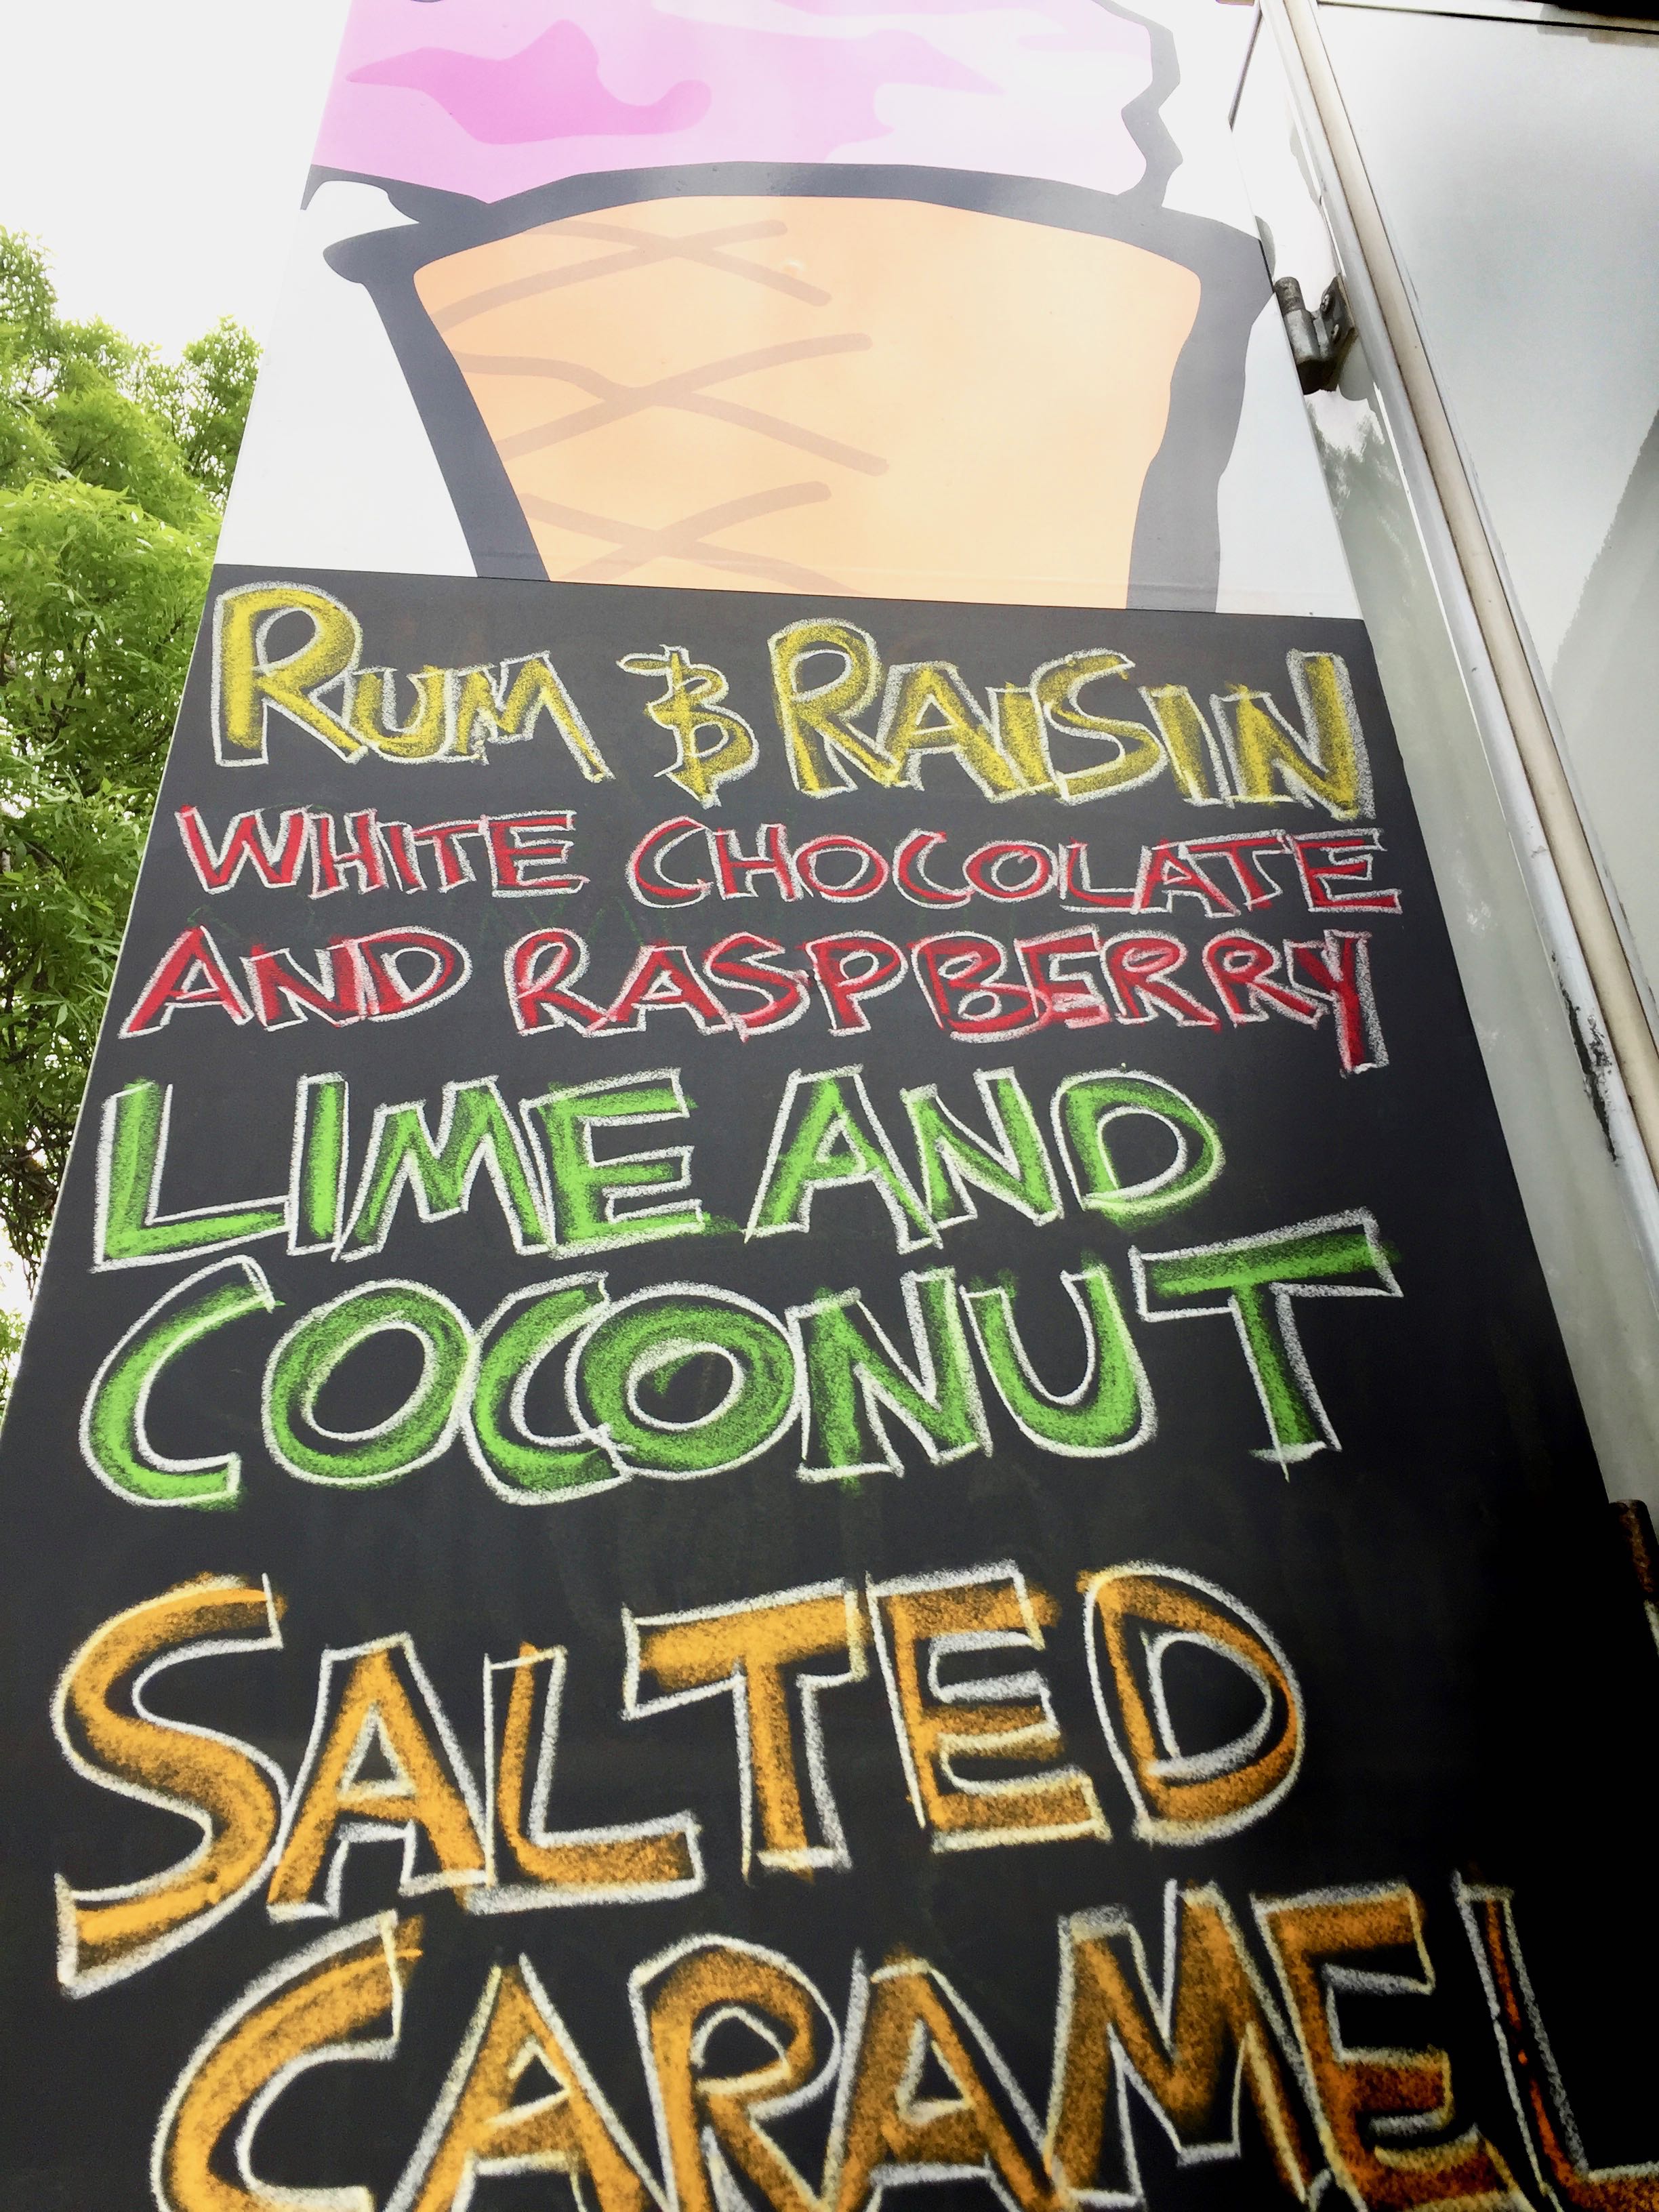 RUM & RAISIN
WHITE CHOCOLATE
AND RASPBERRY
LIME AND
COCONUT
SALTED
CARAMEL